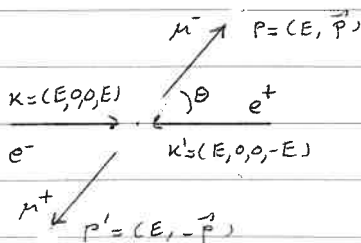 μ⁻ p = (E, p⃗)
K = (E,0,0,E) θ e⁺
e⁻ K' = (E,0,0,-E)
μ⁺
p' = (E, -p⃗)